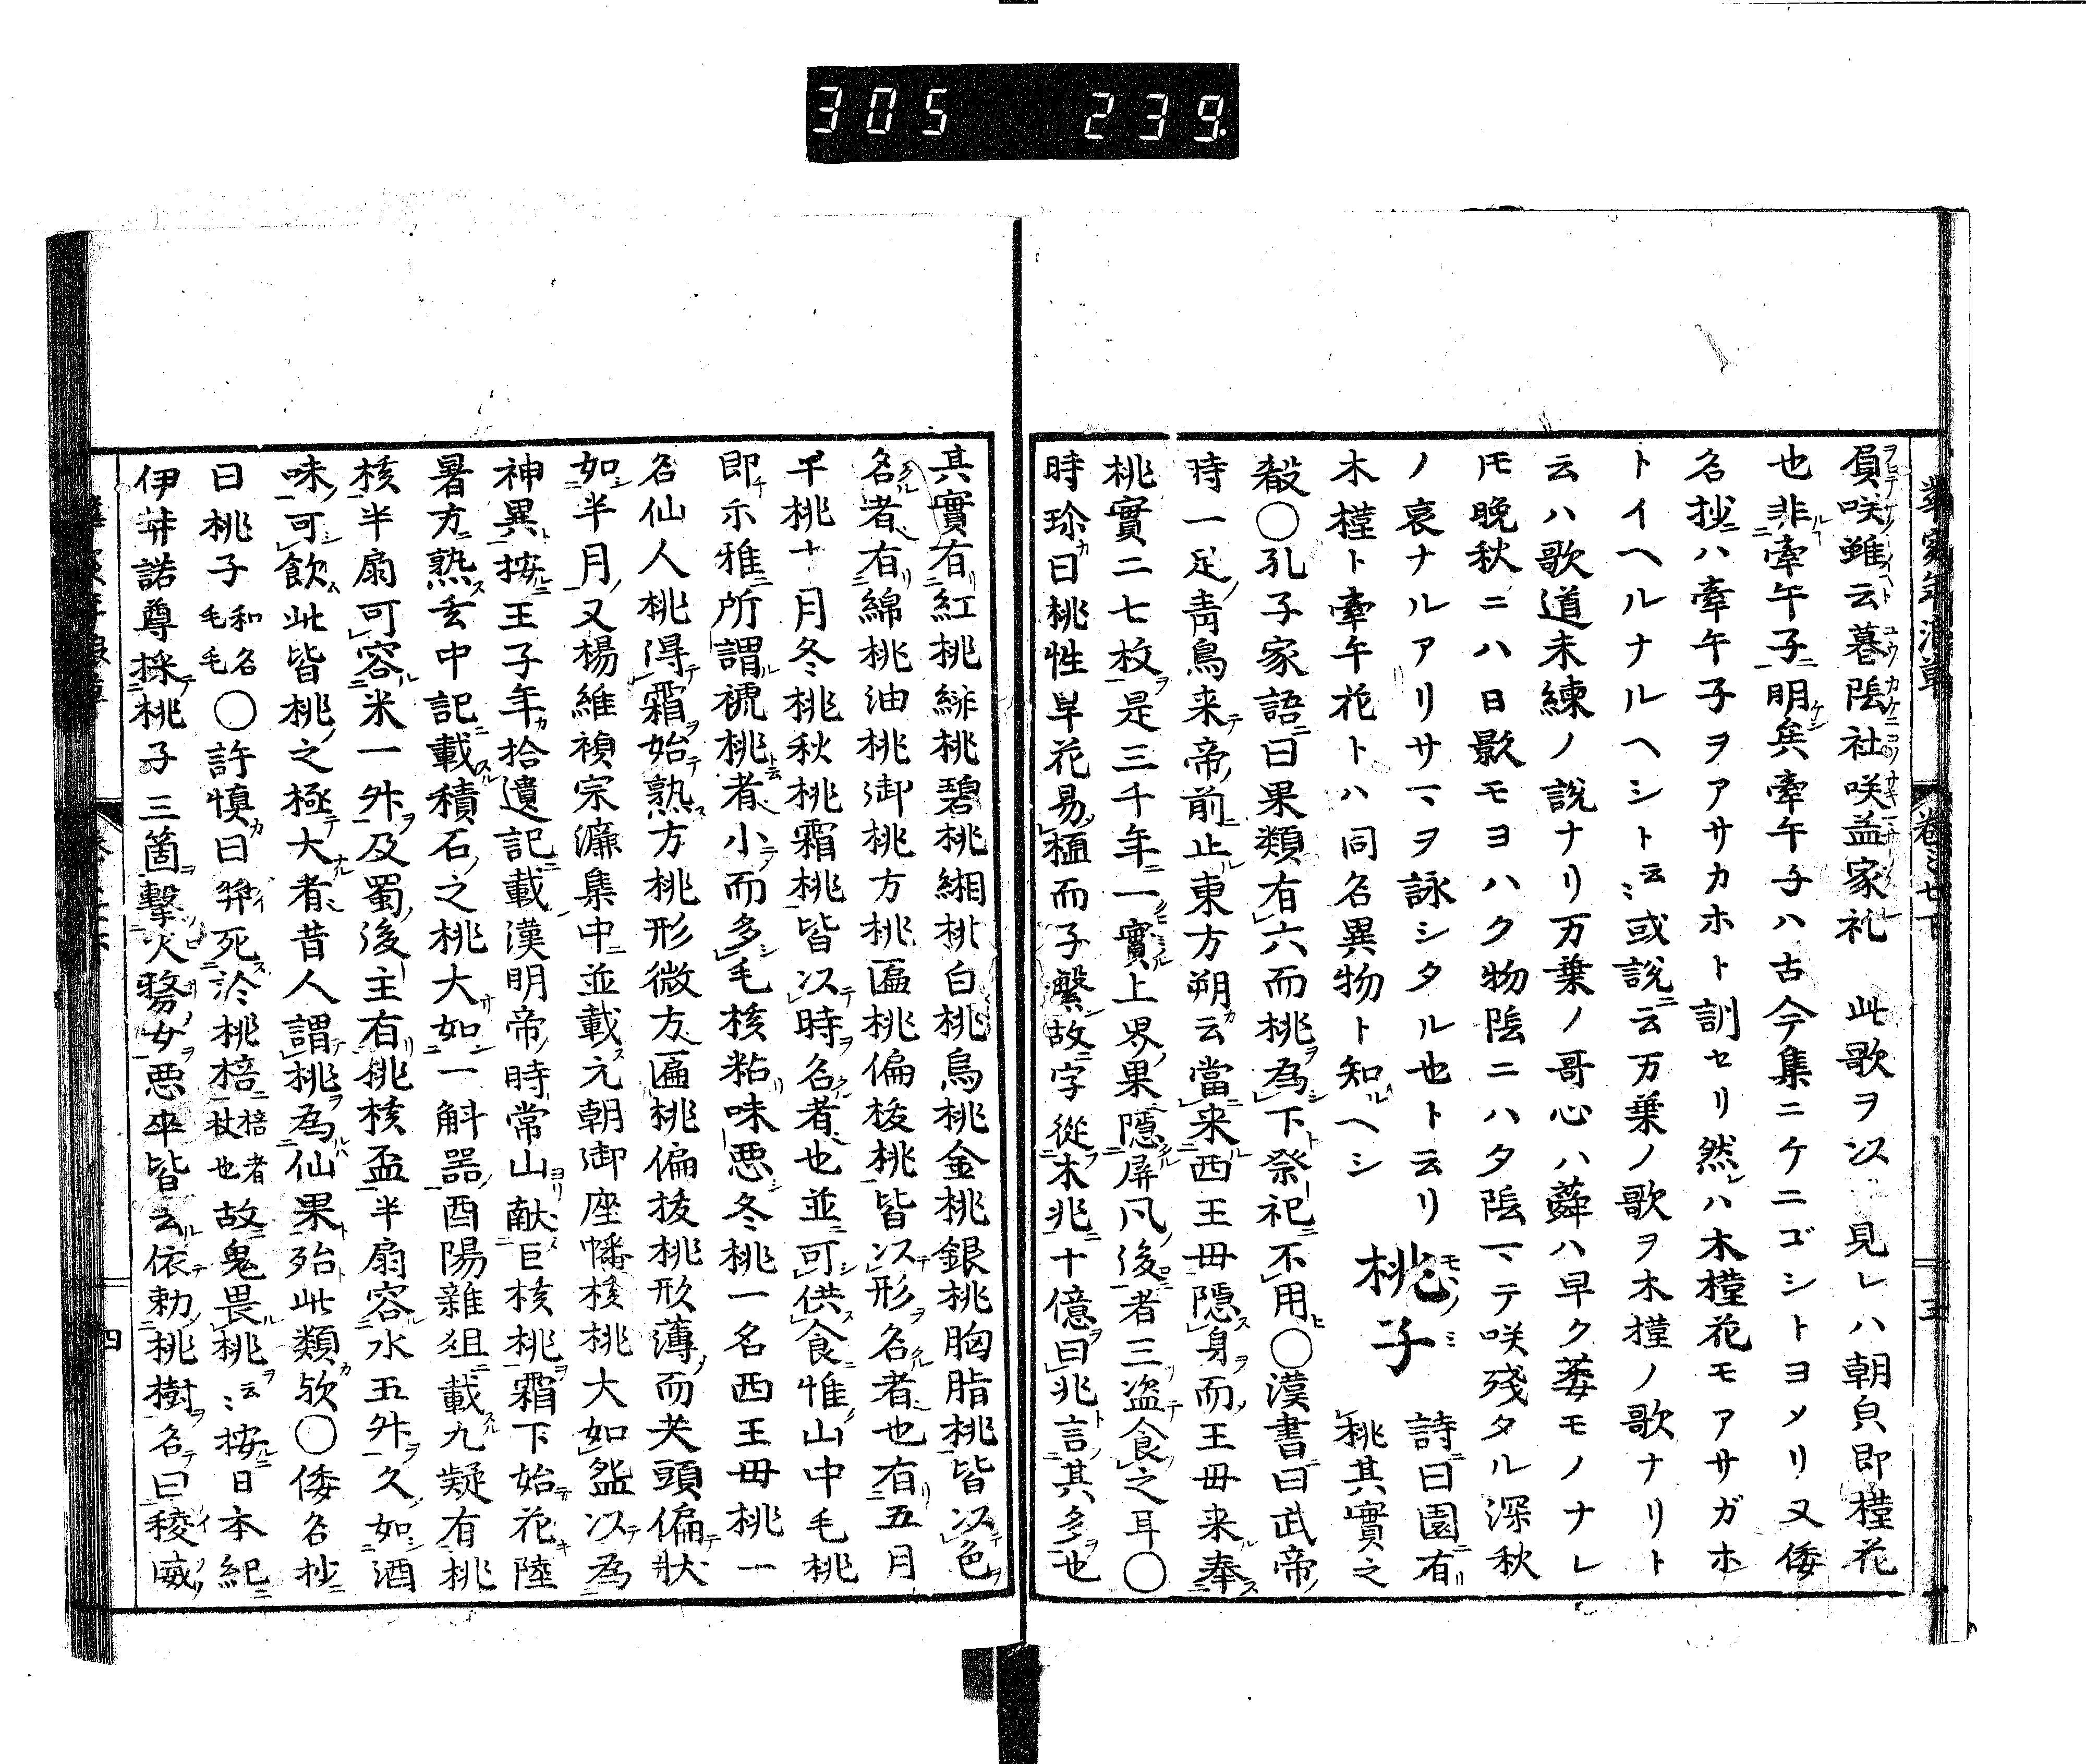 305 239
負咲雖云暮陰社咲益家礼 此歌ヲ以見レハ朝皃即槿花
也非牽午子明矣牽午子ハ古今集ニケニゴシトヨメリ又倭
名抄ニハ牽午子ヲアサカホト訓セリ然レハ木槿花モアサガホ
トイヘルナルヘシト云〻或說云万葉ノ歌ヲ木槿ノ歌ナリト
云ハ歌道未練ノ說ナリ万葉ノ哥心ハ蕣ハ早ク萎モノナレ
𪜈晩秋ニハ日影モヨハク物陰ニハタ陰マテ咲殘タル深秋
ノ哀ナルアリサマヲ詠シタル也ト云リ
木槿ト牽午花トハ同名異物ト知ヘシ
桃子 詩曰園有
桃其實之
殽○孔子家語曰果類有六而桃為下祭祀不用○漢書曰武帝
時一足青鳥来帝前止東方朔云當来西王母隱身而王母来奉
桃實二七枚是三千年一實上界果隱屏風後者三盗食之耳○
時珍曰桃性早花易植而子繁故字從木兆十億曰兆言其多也
其實有紅桃緋桃碧桃緗桃白桃烏桃金桃銀桃胸脂桃皆以色
名者有綿桃油桃御桃方桃匾桃偏核桃皆以形名者也有五月
早桃十月冬桃秋桃霜桃皆以時名者也並可供食惟山中毛桃
即尓雅所謂褫桃者小而多毛核粘味悪冬桃一名西王母桃一
名仙人桃得霜始熟方桃形微方匾桃偏核桃形薄而尖頭偏狀
如半月又楊維禎宋濂集中並載元朝御座幡核桃大如盌以為
神異按王子年拾遺記載漢明帝時常山献巨核桃霜下始花隆
暑方熟玄中記載積石之桃大如一斛噐酉陽雜俎載九疑有桃
核半扇可容米一升及蜀後主有桃核盃半扇容水五升久如酒
味可飲此皆桃之極大者昔人謂桃為仙果殆此類欤○倭名抄
曰桃子 和名毛毛 ○許慎曰羿死於桃棓 棓者杖也 故鬼畏桃云〻按日本紀
伊弉諾尊採桃子三箇擊火𦚾女悪卒皆云依勅桃樹名曰稜威